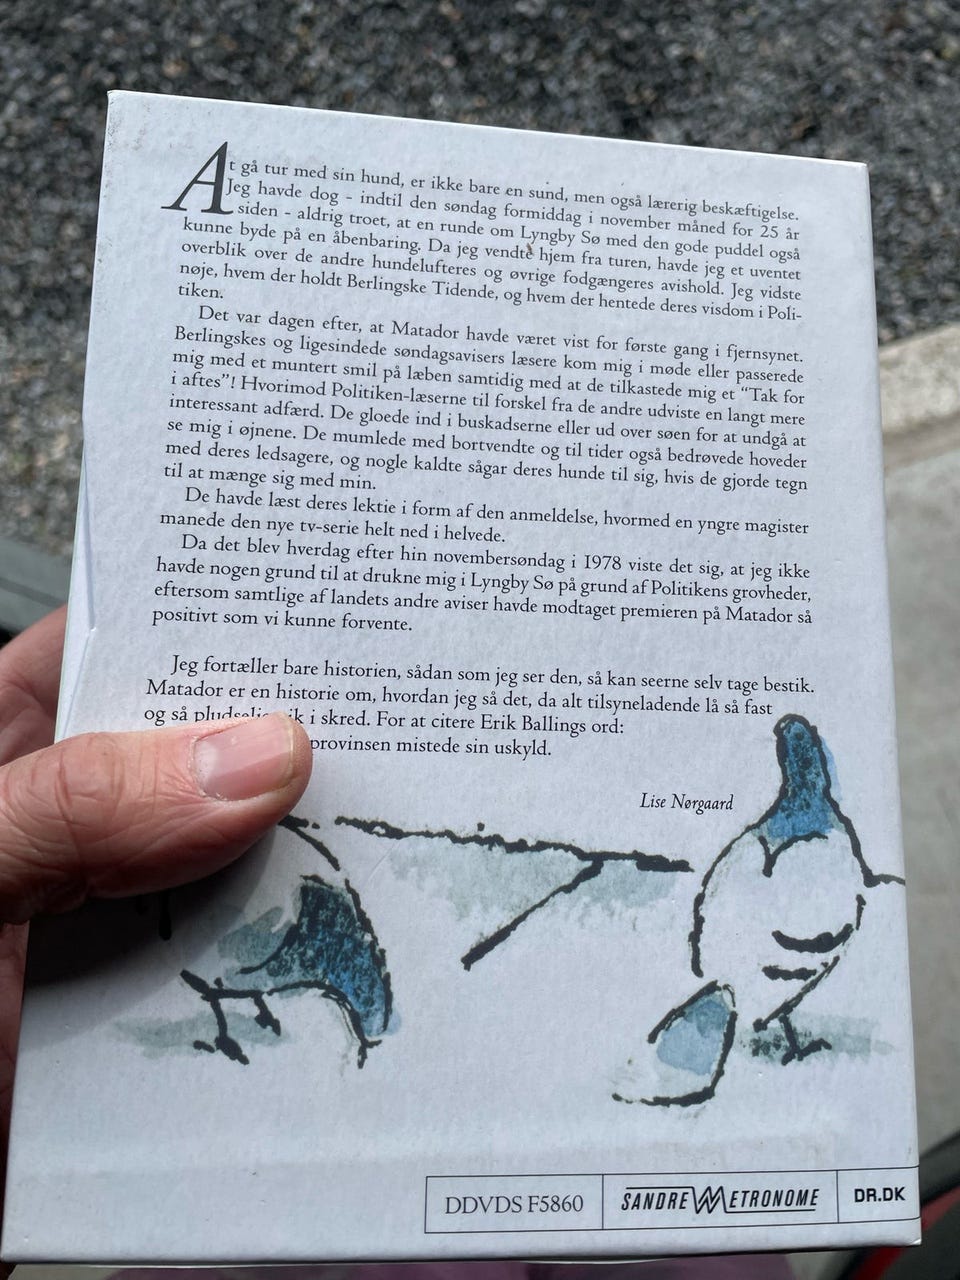 At gå tur med sin hund, er ikke bare en sund, men også lærerig beskæftigelse.
Jeg havde dog - indtil den søndag formiddag i november måned for 25 år
siden - aldrig troet, at en runde om Lyngby Sø med den gode puddel også
kunne byde på en åbenbaring. Da jeg vendte hjem fra turen, havde jeg et uventet
overblik over de andre hundelufteres og øvrige fodgængeres avishold. Jeg vidste
nøje, hvem der holdt Berlingske Tidende, og hvem der hentede deres visdom i Poli-
tiken.
Det var dagen efter, at Matador havde været vist for første gang i fjernsynet.
Berlingskes og ligesindede søndagsavisers læsere kom mig i møde eller passerede
mig med et muntert smil på læben samtidig med at de tilkastede mig et “Tak for
i aftes”! Hvorimod Politiken-læserne til forskel fra de andre udviste en langt mere
interessant adfærd. De gloede ind i buskadserne eller ud over søen for at undgå at
se mig i øjnene. De mumlede med bortvendte og til tider også bedrøvede hoveder
med deres ledsagere, og nogle kaldte sågar deres hunde til sig, hvis de gjorde tegn
til at mænge sig med min.
De havde læst deres lektie i form af den anmeldelse, hvormed en yngre magister
manede den nye tv-serie helt ned i helvede.
Da det blev hverdag efter hin novembersøndag i 1978 viste det sig, at jeg ikke
havde nogen grund til at drukne mig i Lyngby Sø på grund af Politikens grovheder,
eftersom samtlige af landets andre aviser havde modtaget premieren på Matador så
positivt som vi kunne forvente.
Jeg fortæller bare historien, sådan som jeg ser den, så kan seerne selv tage bestik.
Matador er en historie om, hvordan jeg så det, da alt tilsyneladende lå så fast
og så pludselig i skred. For at citere Erik Ballings ord:
provinsen mistede sin uskyld.
Lise Nørgaard
DDVDS F5860
SANDREW METRONOME
DR.DK